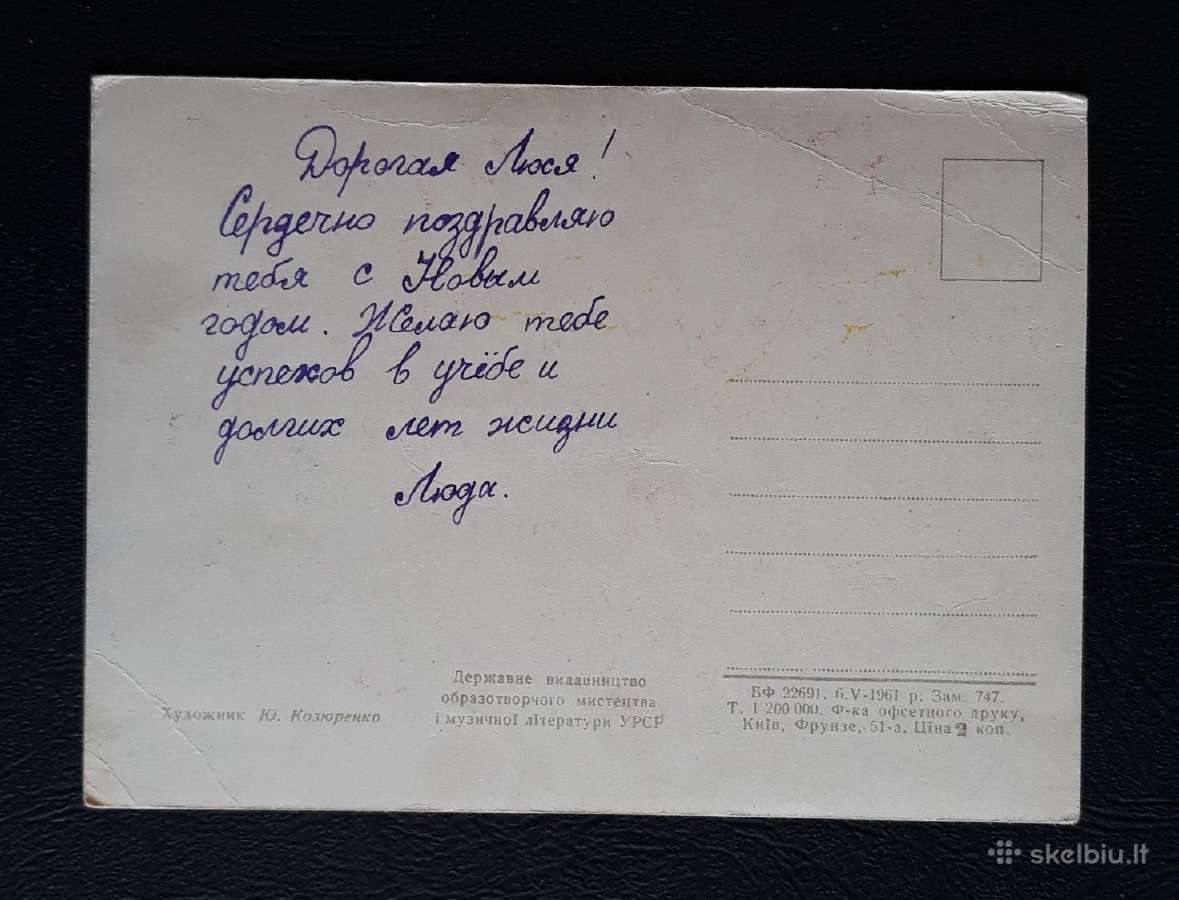 Дорогая Люся!
Сердечно поздравляю
тебя с Новым
годом. Желаю тебе
успехов в учёбе и
долгих лет жизни
Люда.
Художник Ю. Козюренко
Державне видавництво
образотворчого мистецтва
і музичної літератури УРСР
БФ 22691. 6.V-1961 р. Зам. 747.
Т. 1 200 000. Ф-ка офсетного друку,
Київ, Фрунзе, 51-а. Ціна 2 коп.
skelbiu.lt